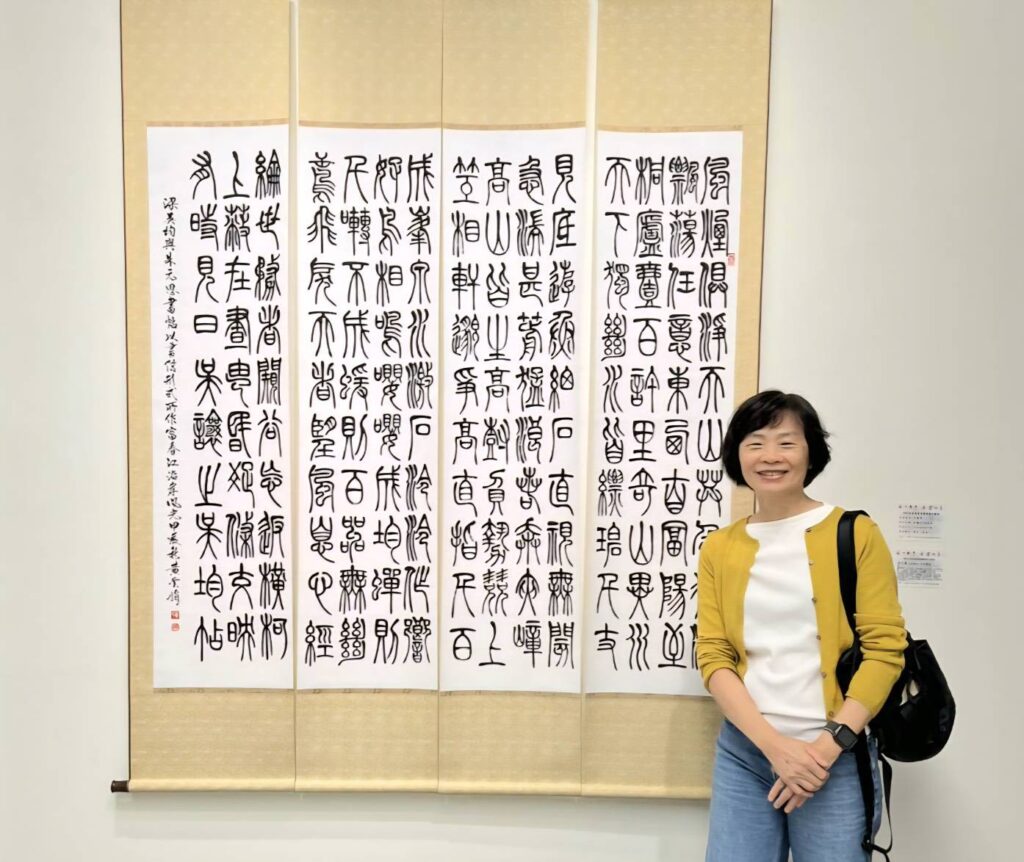 風煙俱淨天山共色
飄蕩任意東西自富陽至
桐廬壹百許里奇山異水
天下獨絕水皆縹碧千丈
見底游魚細石直視無礙
急湍甚箭猛浪若奔夾岸
高山皆生高樹負勢競上
互相軒邈爭高直指千百
成峯泉水激石泠泠作響
好鳥相鳴嚶嚶成韻蟬則
千囀不窮猨則百叫無絕
鳶飛戾天者望峯息心經
綸世務者窺谷忘返橫柯
上蔽在晝猶昏疏條交映
有時見日吳讓之吳均帖
梁吳均與朱元思書 以書信形式所作富春江沿岸風光甲辰秋黃